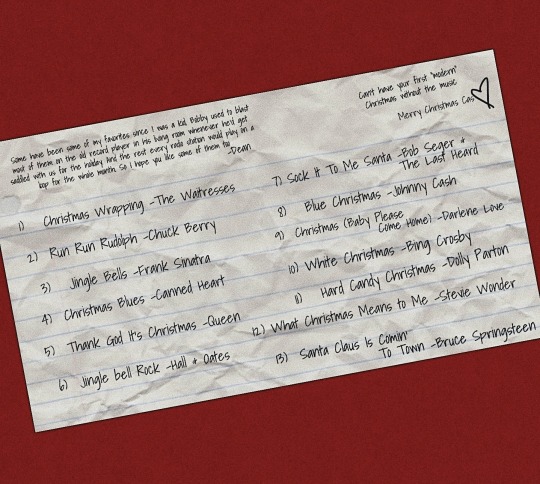 Some have been some of my favorites since I was a kid. Bobby used to blast
most of them on the old record player in his living room whenever he'd get
saddled with us for the holiday. And the rest every radio station would play on a
loop for the whole month. So I hope you like some of them too.
-Dean
Can't have your first "modern"
Christmas without the music
Merry Christmas Cas
1) Christmas Wrapping -The Waitresses
2) Run Run Rudolph -Chuck Berry
3) Jingle Bells -Frank Sinatra
4) Christmas Blues -Canned Heart
5) Thank God It's Christmas -Queen
6) Jingle bell Rock -Hall + Oates
7) Sock It To Me Santa -Bob Seger +
The Last Heard
8) Blue Christmas -Johnny Cash
9) Christmas (Baby Please
Come Home) -Darlene Love
10) White Christmas -Bing Crosby
11) Hard Candy Christmas -Dolly Parton
12) What Christmas Means to Me -Stevie Wonder
13) Santa Claus Is Comin'
To Town -Bruce Springsteen